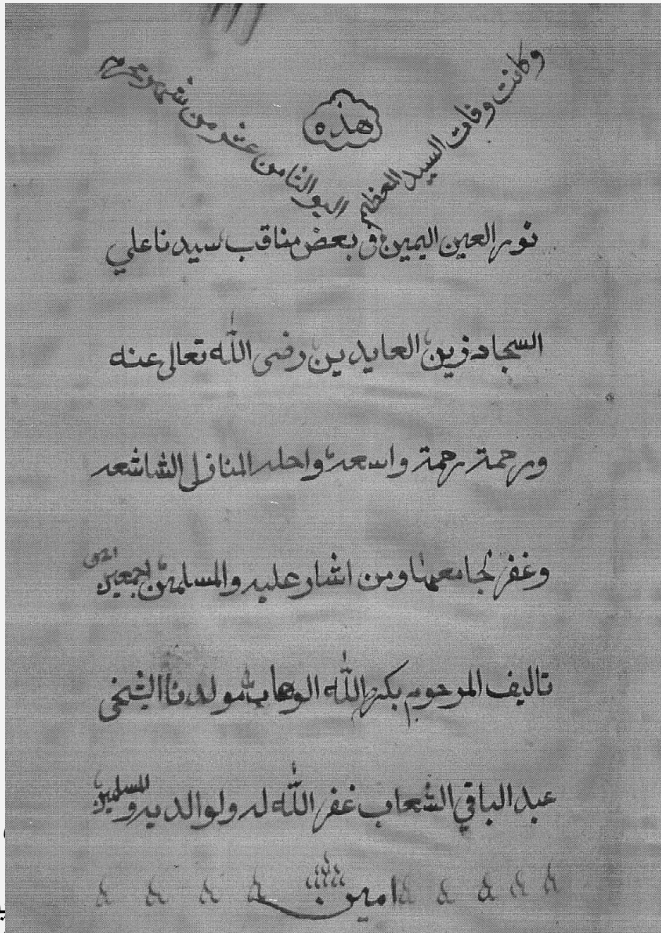 وكانت وفات السيد العظيم اليو الثامن عشر من شهر محرم
هذه
نور العين اليمين في بعض مناقب سيدنا علي
السجاد زين العابدين رضى الله تعالى عنه
ورحمة رحمة واسعة واحله المنازل الشاشعه
وغفر لجامعها ومن اشار عليه والمسلمين اجمعين
تاليف المرحوم بكرم الله الوهاب مولدنا الشيخي
عبد الباقي الشعاب غفر الله له ولوالديه وللمسلمين
امين